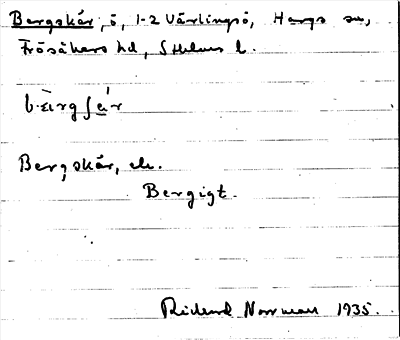 Bergskär, ö, 1-2 Värlingsö, Hargs sn,
Frösåkers hd, Sthlms l.
Bergskär, ek.
Bergigt.
Rickard Norrman 1935.